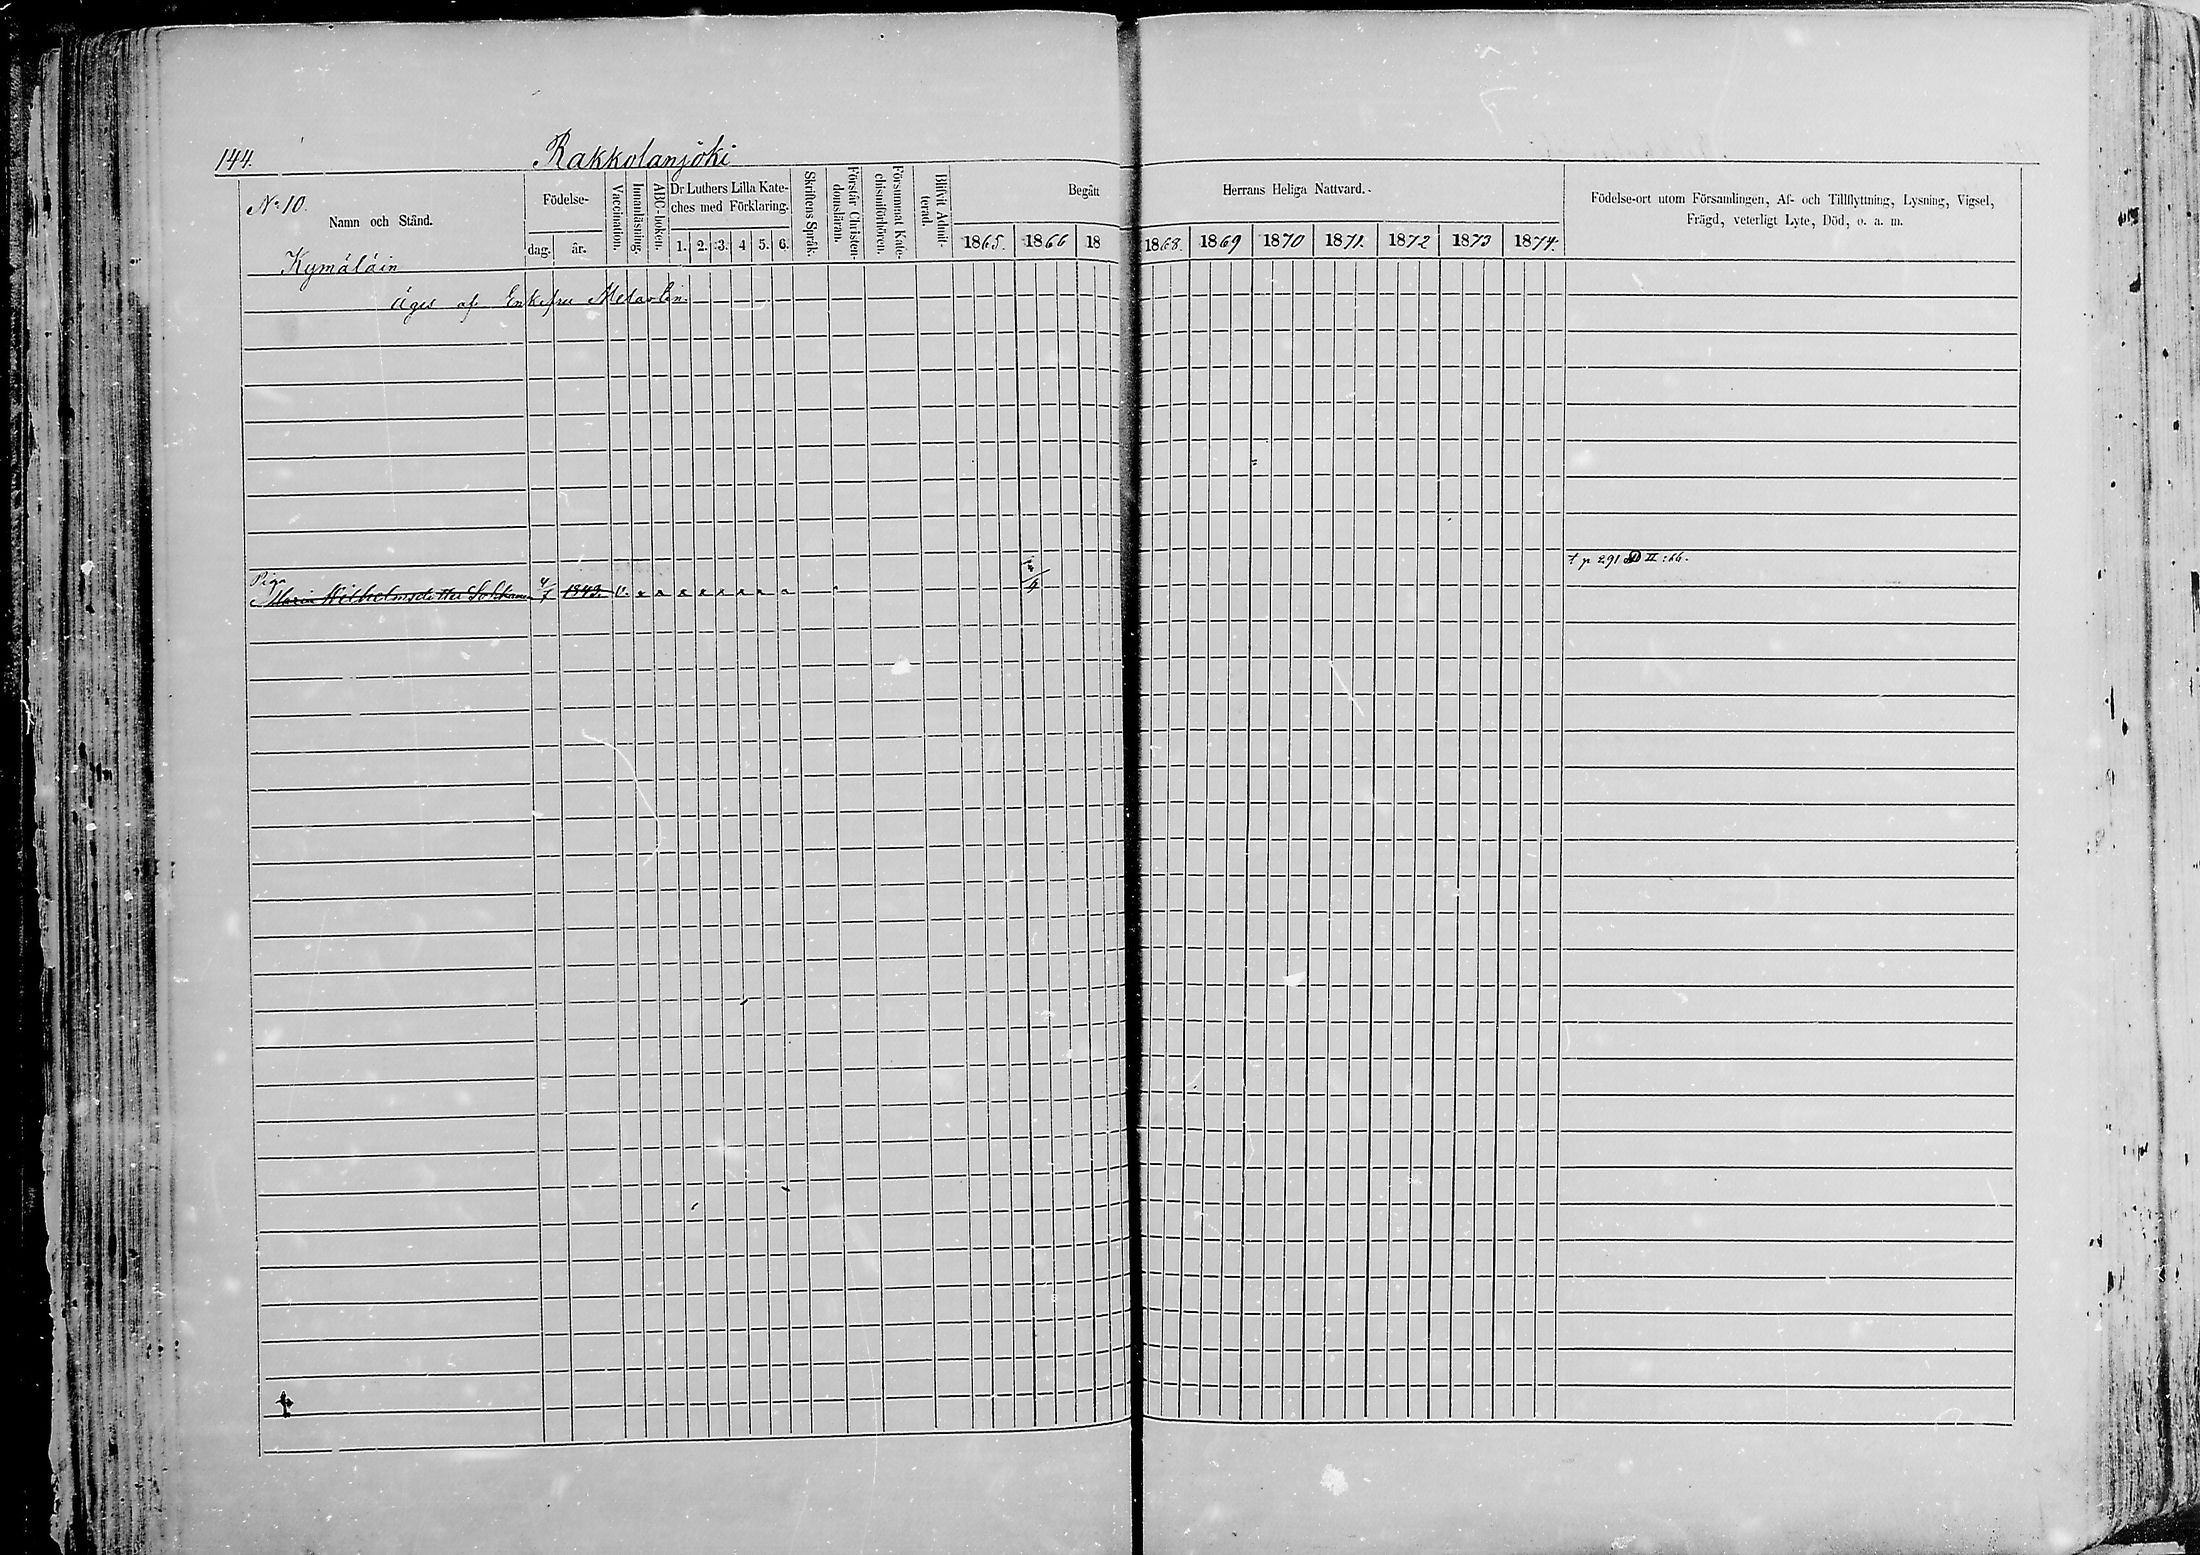 144.
Rakkolanjoki
No 10.
Namn och Stånd.
Födelse-
dag. år.
Vaccination.
Innanläsning.
ABC-boken.
Dr Luthers Lilla Kate-
ches med Förklaring.
1. 2. 3. 4 5. 6.
Skriftens Språk.
Förstår Christen-
domsläran.
Försummat Kate-
chismiförhören.
Blifvit Admit-
terad.
Begått
1865. 1866 18
Herrans Heliga Nattvard.
1868. 1869 1870 1871. 1872 1873 1874.
Födelse-ort utom Församlingen, Af- och Tillflyttning, Lysning, Vigsel,
Frägd, veterligt Lyte, Död, o. a. m.
Kymäläin
Äges af Enkefru
Piga
Maria Wilhelmsdotter 1843. v.
t p 291 II :66.